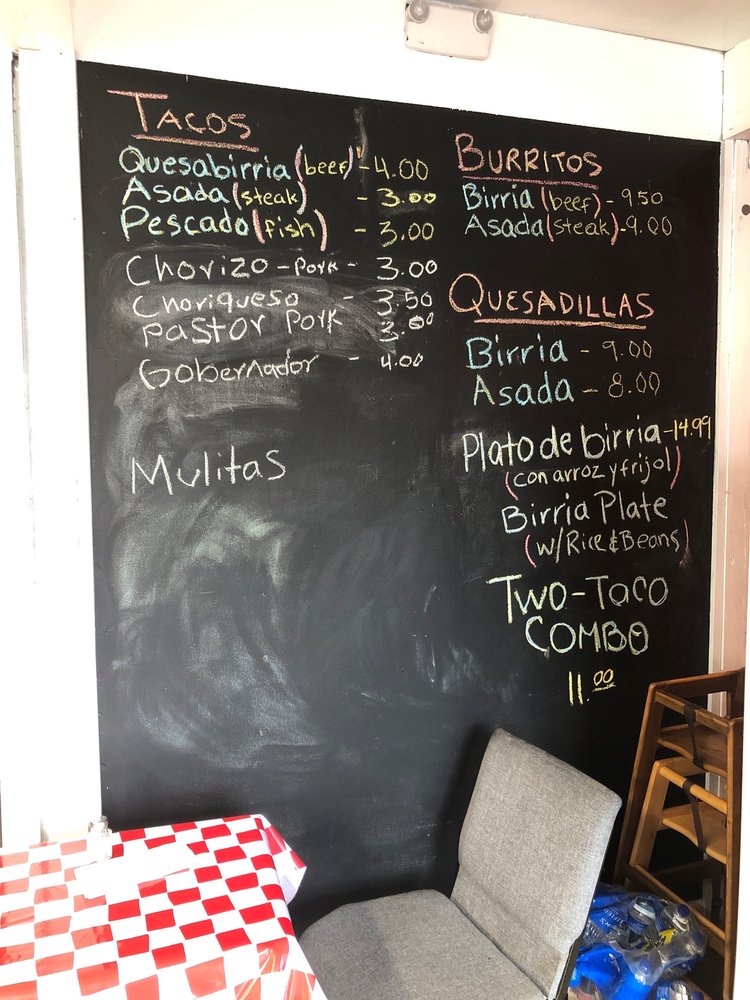 TACOS
Quesabirria (beef) - 4.00
Asada (steak) - 3.00
Pescado (fish) - 3.00
Chorizo - Pork - 3.00
Choriqueso - 3.50
Pastor Pork 3.00
Gobernador - 4.00
Mulitas
BURRITOS
Birria (beef) - 9.50
Asada (steak) - 9.00
QUESADILLAS
Birria - 9.00
Asada - 8.00
Plato de birria - 14.99
(con arroz y frijol)
Birria Plate
(w/Rice & Beans)
TWO-TACO
COMBO
11.00